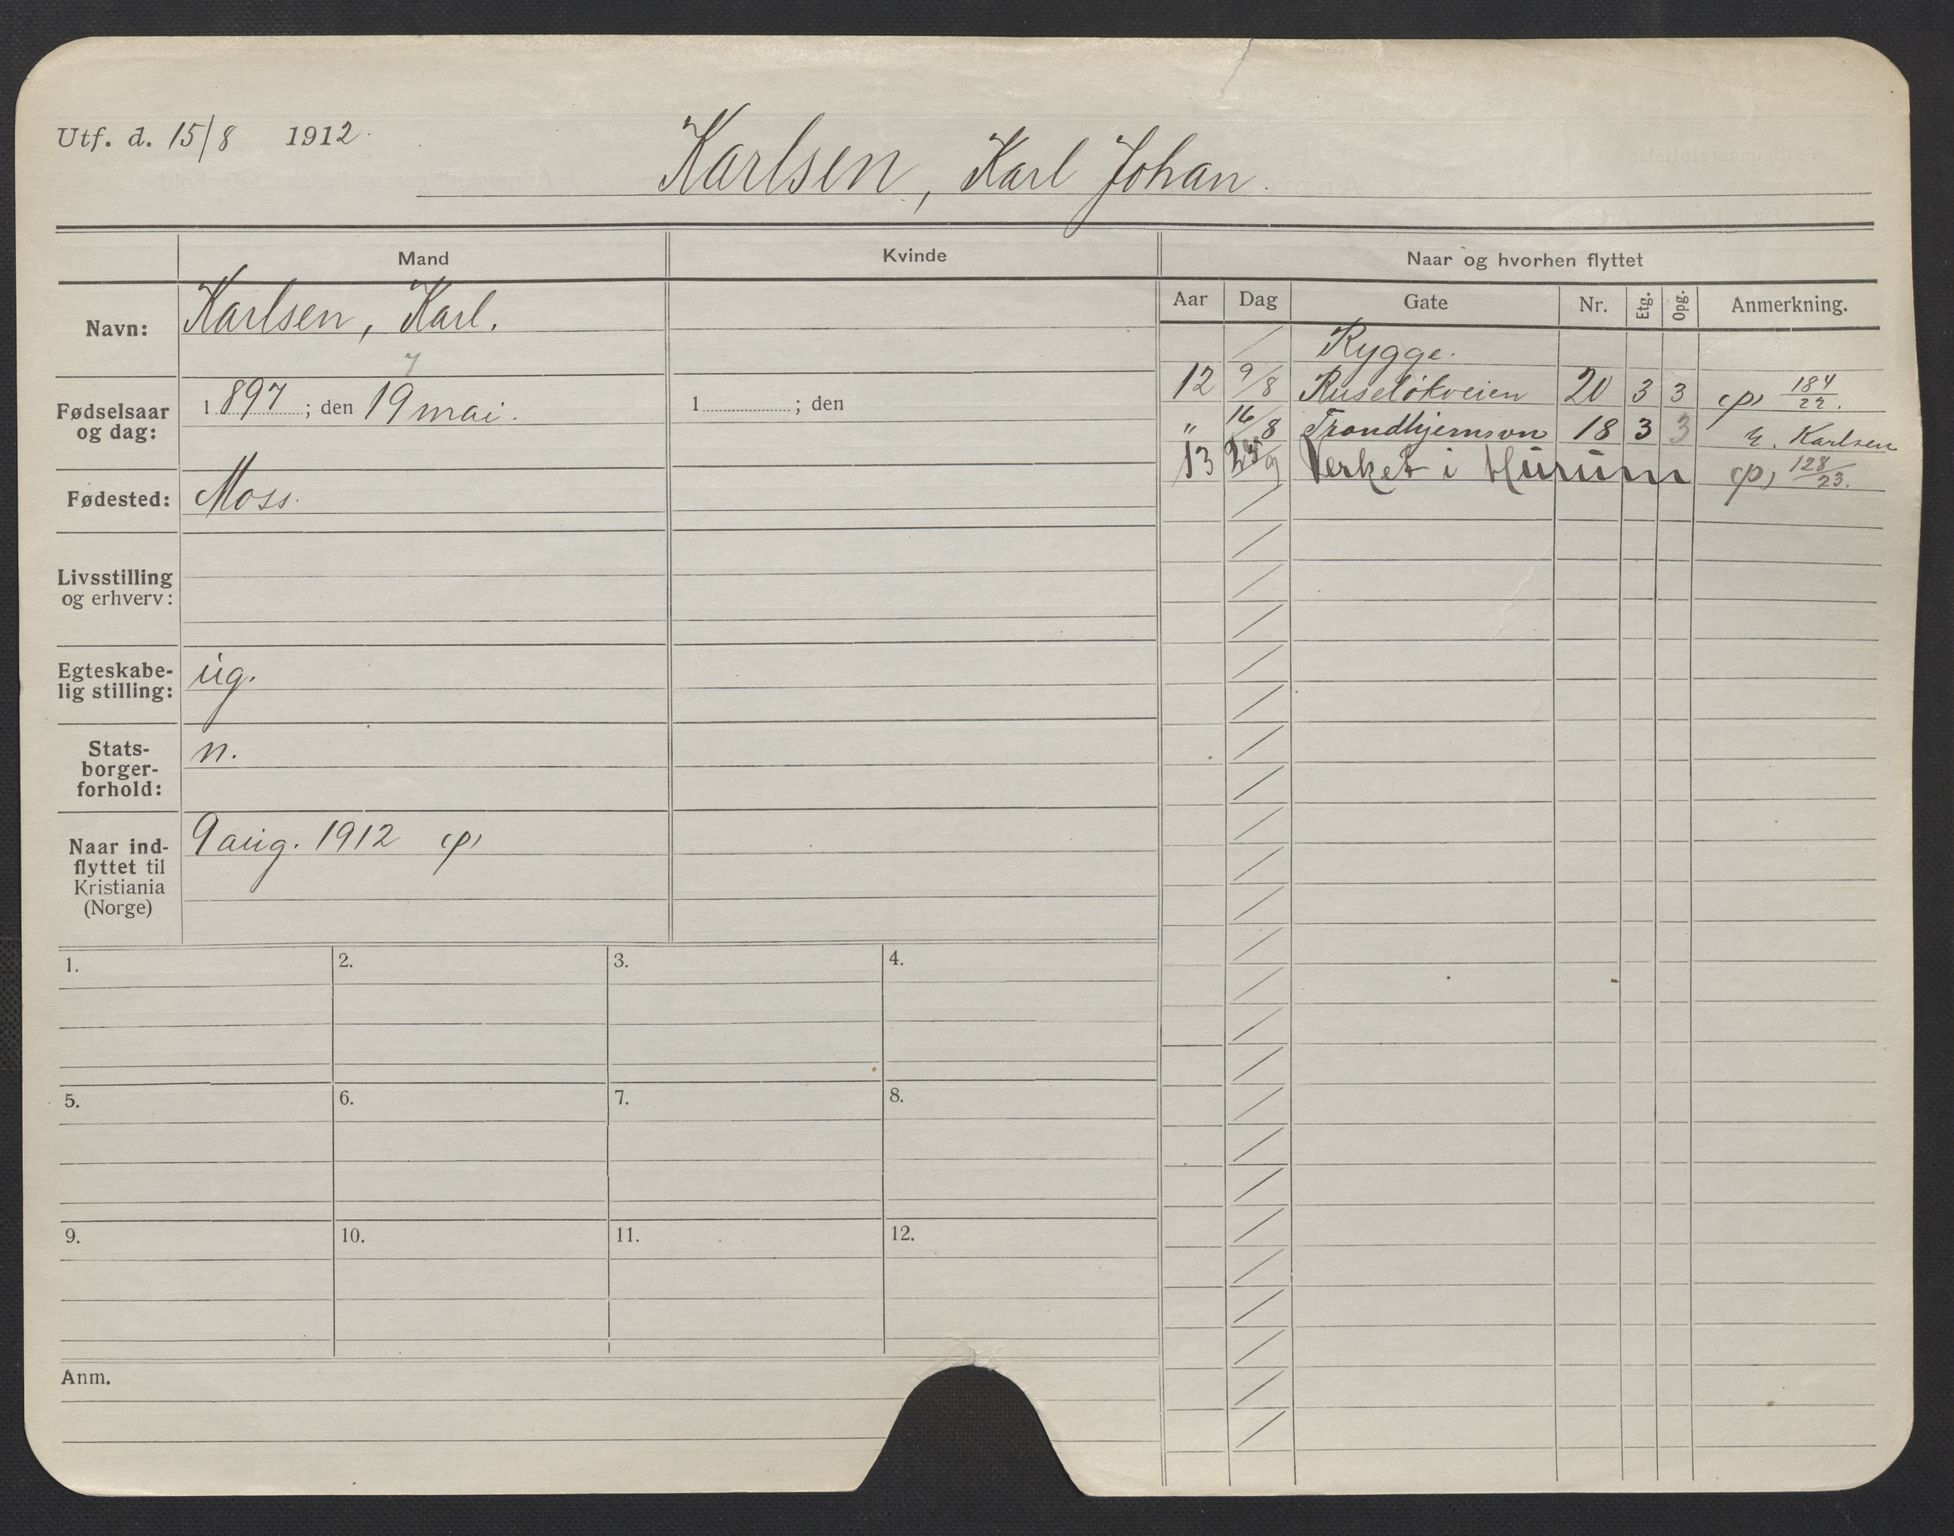 Utf. d. 15/8 1912.
Karlsen, Karl Johan.
Mand
Kvinde
Naar og hvorhen flyttet
Navn:
Karlsen, Karl.
7
Fødselsaar og dag:
1897; den 19 mai.
1 ; den
Fødested:
Moss.
Livsstilling og erhverv:
Egteskabe-
lig stilling:
ug.
Stats-
borger-
forhold:
n.
Naar ind-
flyttet til
Kristiania
(Norge)
9 aug. 1912 φ
Aar Dag Gate Nr. Etg. Opg. Anmerkning.
Rygge.
12 9/8 Ruseløkveien 20 3 3 φ 184/22.
" 16/8 Trondhjemsvn 18 3 3 Karlsen
13 Verket i Hurum φ 128/23.
1. 2. 3. 4.
5. 6. 7. 8.
9. 10. 11. 12.
Anm.